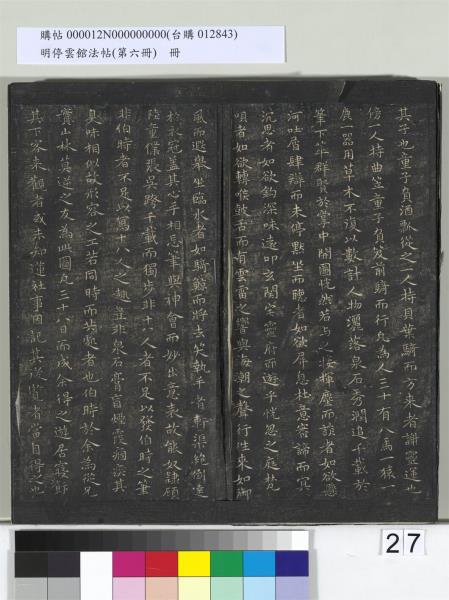 購帖 000012N000000000(台購 012843)
明停雲館法帖(第六冊) 冊
其子也童子負酒瓢從之一人持貝葉騎而方來者謝靈運也
傍一人持曲笠童子負笈前騎而行凡為人三十有八馬一猿一
鹿一器用草木不復以數計人物灑落泉石秀潤追千載於
筆下萃群賢於掌中開圖恍然若與之接揮麈而談者如欲懸
河吐屑肆辯而未停默坐而聽者如欲屏息杜意審諦而冥
沉思者如欲鉤深味遠叩玄關瑩靈府而遊乎恍惚之庭梵
唄者如欲轉喉鼓舌而有雲雷之響與海朝之聲行往來如御
風而遐舉坐臨水者如騎鯨而將去笑執手者軒渠絕倒達
於衣冠盖其心手相忘筆與神會而妙出意表故能奴隸顧
陸童僕張吳跨千載而獨步非十八人者不足以發伯時之筆
非伯時者不足以寫十八人之趣豈非泉石膏肓煙霞痼疾其
臭味相似故形容之工若同時而共處者也伯時於余為從兄
實山林莫逆之友為此圖凡三十八日而成余得之遊居寢飯
其下客來觀者或未知蓮社事因記其後覽者當自得之也
27